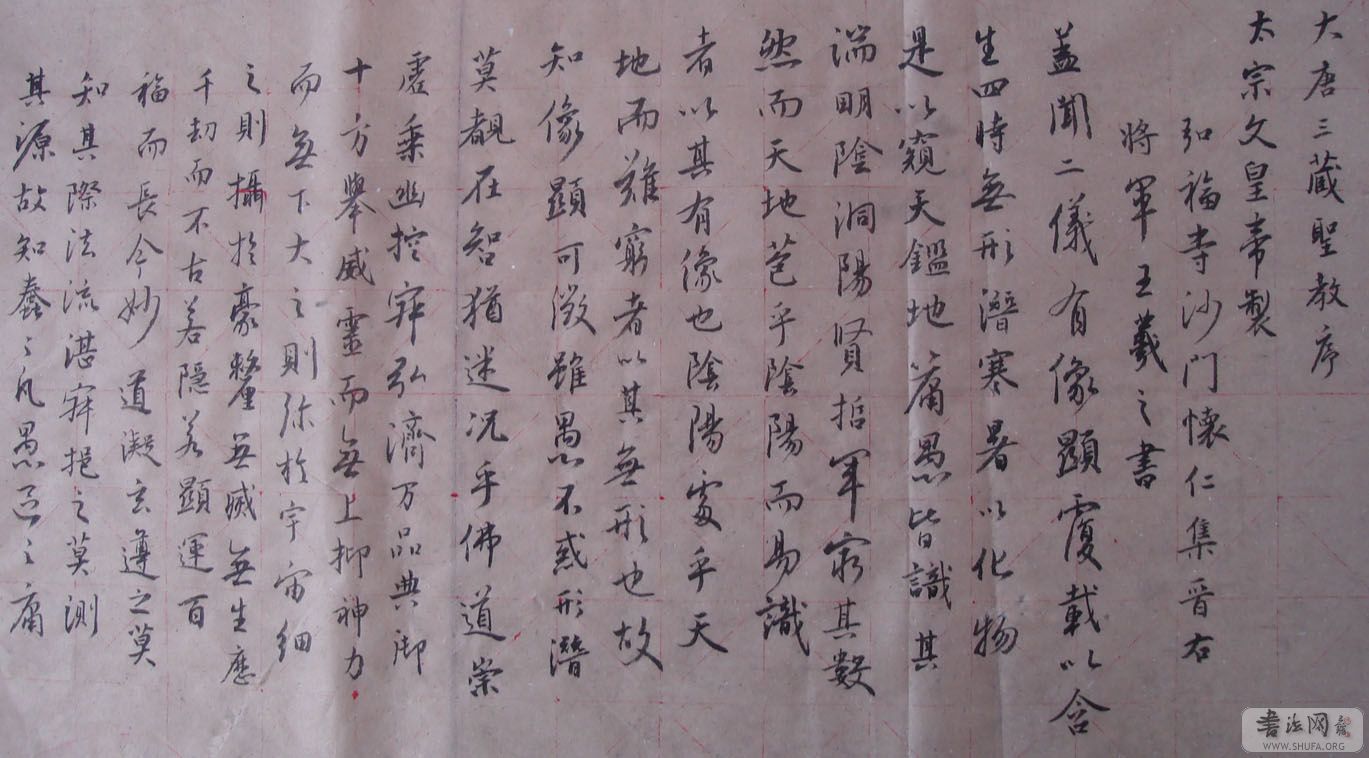 大唐三蔵聖教序
太宗文皇帝製
弘福寺沙門懷仁集晋右
將軍王羲之書
蓋聞二儀有像顯覆載以含
生四時無形潛寒暑以化物
是以窺天鑑地庸愚皆識其
端明陰洞陽賢哲罕窮其數
然而天地苞乎陰陽而易識
者以其有像也陰陽處乎天
地而難窮者以其無形也故
知像顯可徵雖愚不惑形潛
莫覩在智猶迷況乎佛道崇
虛乗幽控寂弘濟万品典御
十方舉威靈而無上抑神力
而無下大之則弥於宇宙細
之則攝於豪釐無滅無生歷
千劫而不古若隱若顯運百
福而長今妙道凝玄遵之莫
知其際法流湛寂挹之莫測
其源故知蠢〻凡愚區〻庸
書法网
WWW.SHUFA.ORG